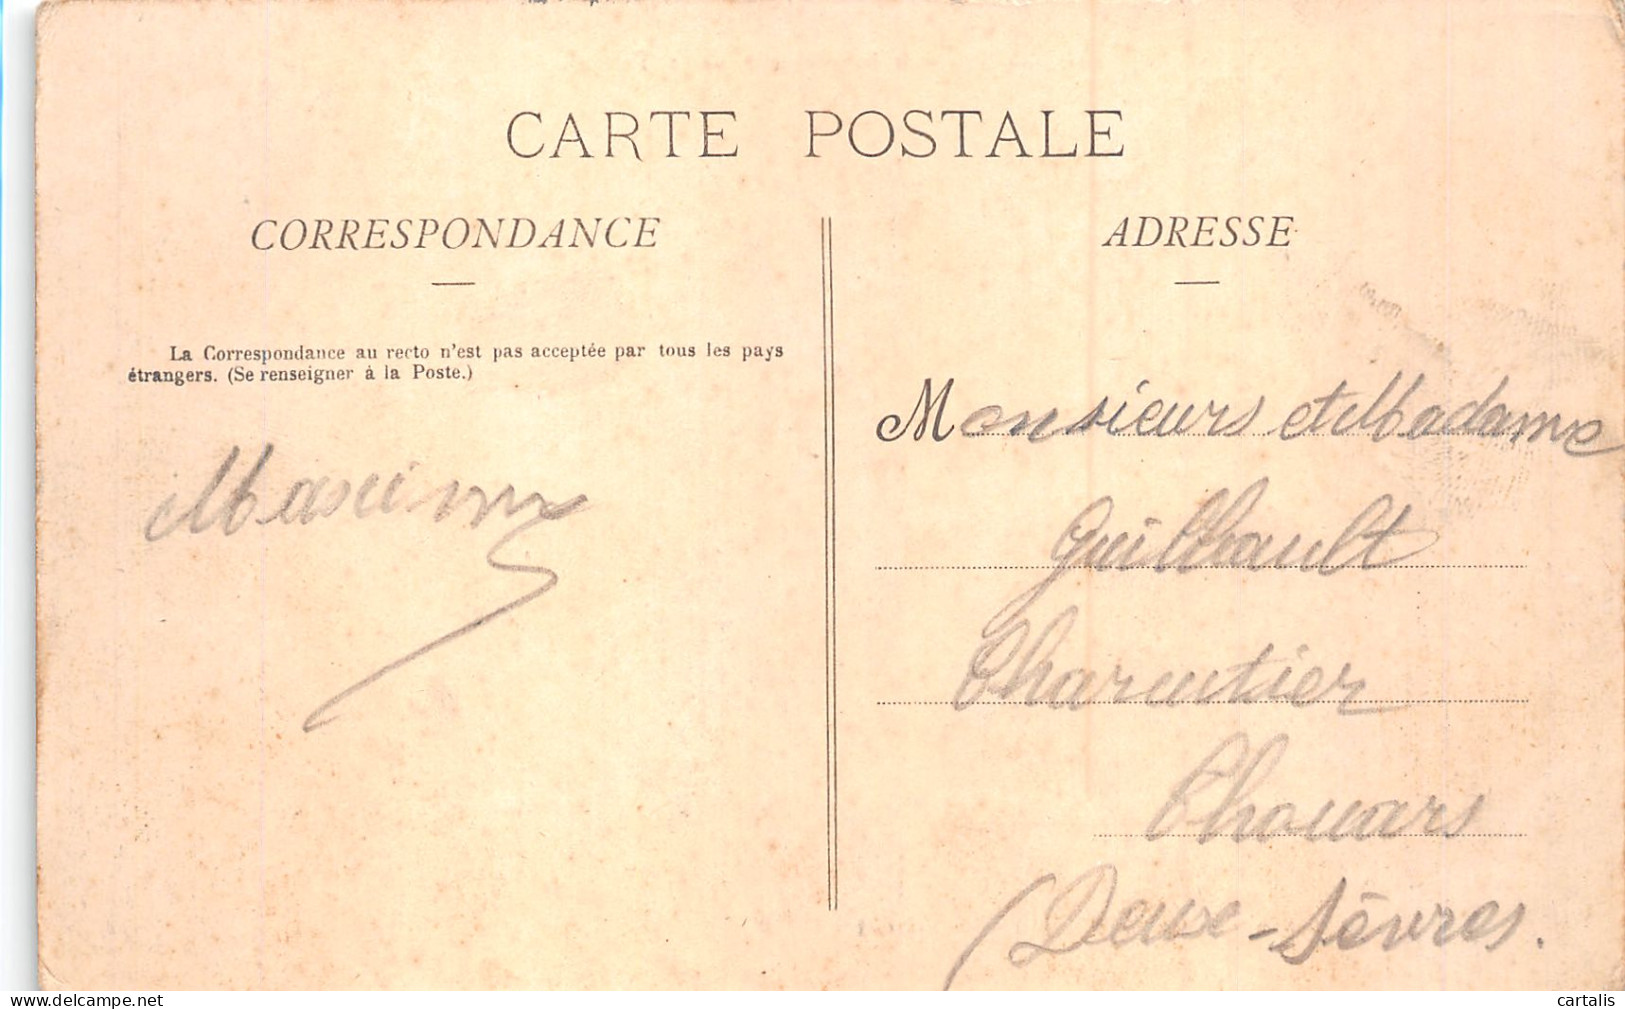 CARTE POSTALE
CORRESPONDANCE
La Correspondance au recto n'est pas acceptée par tous les pays
étrangers. (Se renseigner à la Poste.)
Maxime
ADRESSE
Monsieurs et Madame
Guilbault
Charentier
Thouars
(Deux-Sèvres.
delcampe.net
cartalis